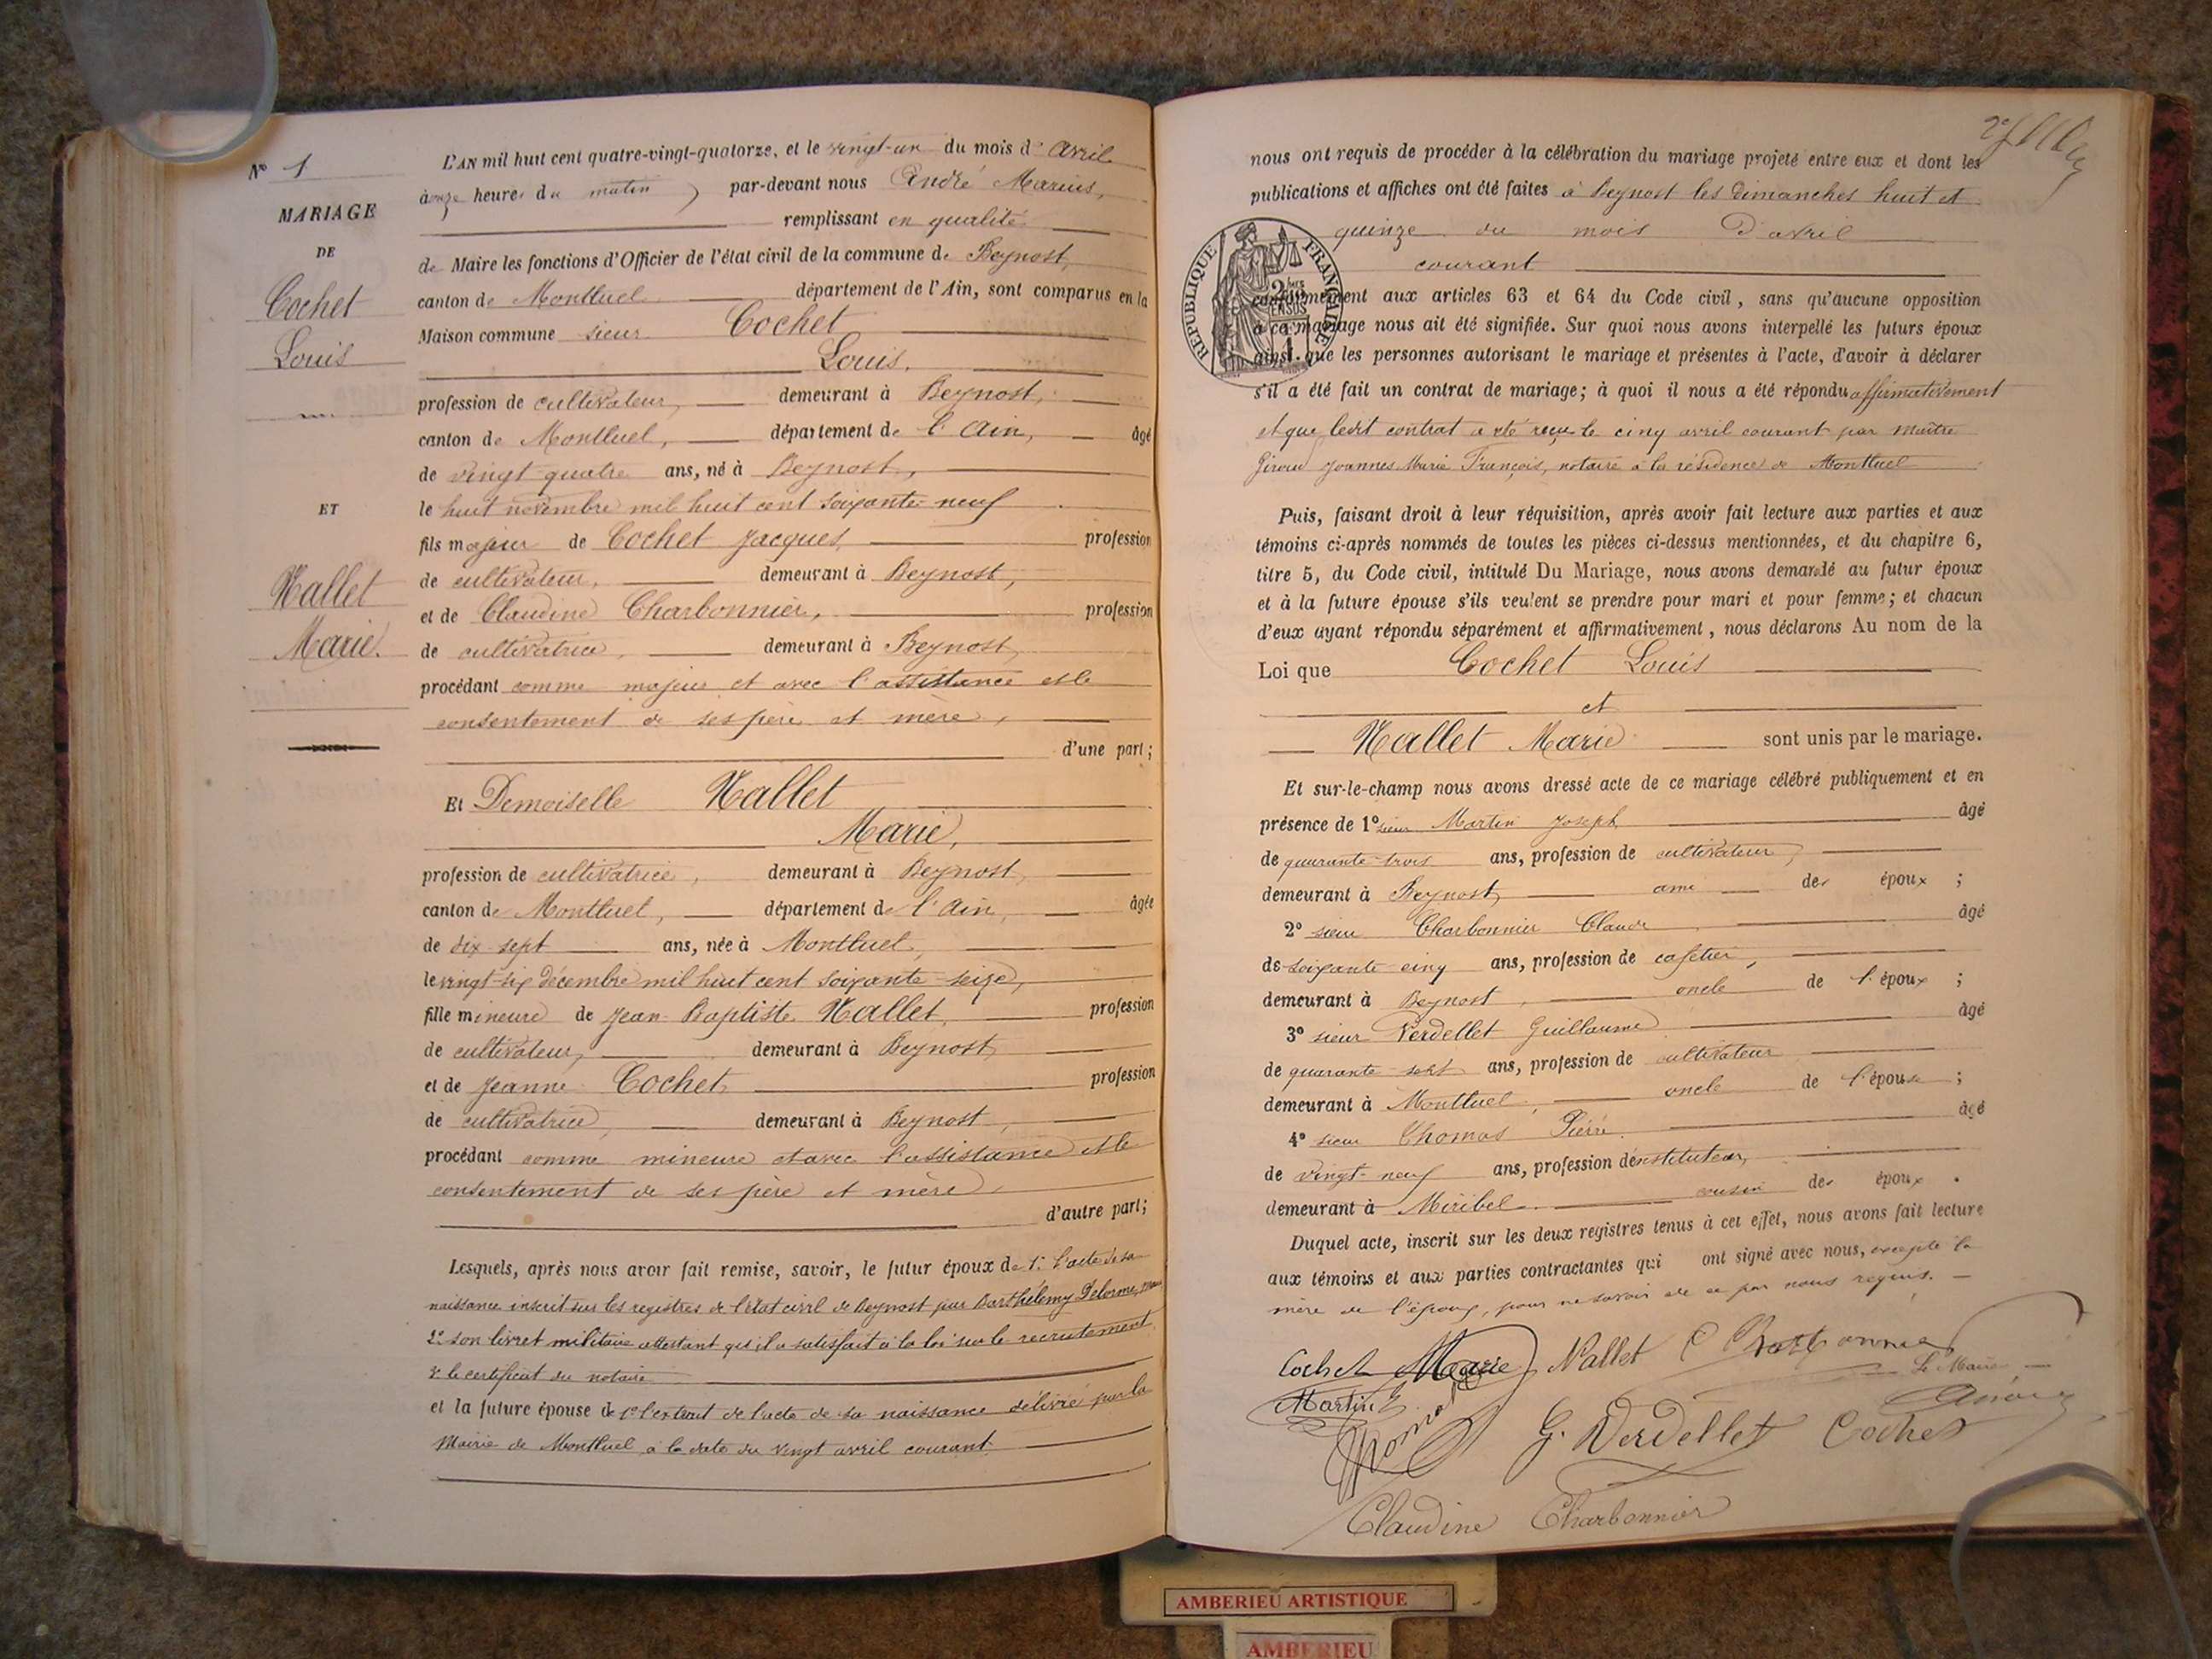 Nº 1
MARIAGE
DE
Cochet
Louis
ET
Nallet
Marie.
L'AN mil huit cent quatre-vingt-quatorze, et le vingt-un du mois d'avril
à onze heures du matin, par-devant nous André Marius,
remplissant en qualité
de Maire les fonctions d'Officier de l'état civil de la commune de Beynost,
canton de Montluel département de l'Ain, sont comparus en la
Maison commune sieur Cochet
Louis,
profession de cultivateur, demeurant à Beynost,
canton de Montluel, département de l'Ain, âgé
de vingt quatre ans, né à Beynost,
le huit novembre mil huit cent soixante-neuf
fils majeur de Cochet Jacques, profession
de cultivateur, demeurant à Beynost,
et de Claudine Charbonnier, profession
de cultivatrice, demeurant à Beynost,
procédant comme majeur et avec l'assistance et le
consentement de ses père et mère,
d'une part;
Et Demoiselle Nallet
Marie,
profession de cultivatrice, demeurant à Beynost,
canton de Montluel, département de l'Ain, âgée
de dix-sept ans, née à Montluel,
le vingt-six décembre mil huit cent soixante-seize,
fille mineure de Jean-Baptiste Nallet, profession
de cultivateur, demeurant à Beynost,
et de Jeanne Cochet, profession
de cultivatrice, demeurant à Beynost,
procédant comme mineure et avec l'assistance et le
consentement de ses père et mère,
d'autre part;
Lesquels, après nous avoir fait remise, savoir, le futur époux de 1º l'acte de sa
naissance inscrit sur les registres de l'état civil de Beynost par Barthélemy Delorme, maire
2º son livret militaire attestant qu'il a satisfait à la loi sur le recrutement
3º le certificat du notaire
et la future épouse de 1º l'extrait de l'acte de sa naissance délivré par la
Mairie de Montluel à la date du vingt avril courant
nous ont requis de procéder à la célébration du mariage projeté entre eux et dont les
publications et affiches ont été faites à Beynost les Dimanches huit et
quinze du mois d'avril
courant
RÉPUBLIQUE FRANÇAISE
conformément aux articles 63 et 64 du Code civil, sans qu'aucune opposition
à ce mariage nous ait été signifiée. Sur quoi nous avons interpellé les futurs époux
ainsi que les personnes autorisant le mariage et présentes à l'acte, d'avoir à déclarer
s'il a été fait un contrat de mariage; à quoi il nous a été répondu affirmativement
et que ledit contrat a été reçu le cinq avril courant par maître
Giroud Joannes Marie François, notaire à la résidence de Montluel
Puis, faisant droit à leur réquisition, après avoir fait lecture aux parties et aux
témoins ci-après nommés de toutes les pièces ci-dessus mentionnées, et du chapitre 6,
titre 5, du Code civil, intitulé Du Mariage, nous avons demandé au futur époux
et à la future épouse s'ils veulent se prendre pour mari et pour femme; et chacun
d'eux ayant répondu séparément et affirmativement, nous déclarons Au nom de la
Loi que Cochet Louis
et
Nallet Marie sont unis par le mariage.
Et sur-le-champ nous avons dressé acte de ce mariage célébré publiquement et en
présence de 1º sieur Martin Joseph âgé
de quarante-trois ans, profession de cultivateur,
demeurant à Beynost, ami des époux;
2º sieur Charbonnier Claude âgé
de soixante cinq ans, profession de cafetier,
demeurant à Beynost, oncle de l'époux;
3º sieur Verdellet Guillaume âgé
de quarante-sept ans, profession de cultivateur
demeurant à Montluel, oncle de l'épouse;
4º sieur Thomas Pierre âgé
de vingt-neuf ans, profession d'instituteur,
demeurant à Miribel cousin des époux.
Duquel acte, inscrit sur les deux registres tenus à cet effet, nous avons fait lecture
aux témoins et aux parties contractantes qui ont signé avec nous, excepté la
mère de l'époux, pour ne savoir de ce par nous requis.
Cochet Marie Nallet C Charbonnier
Le Maire
Martin J. André
Thomas G. Verdellet Cochet
Claudine Charbonnier
AMBERIEU ARTISTIQUE
AMBERIEU